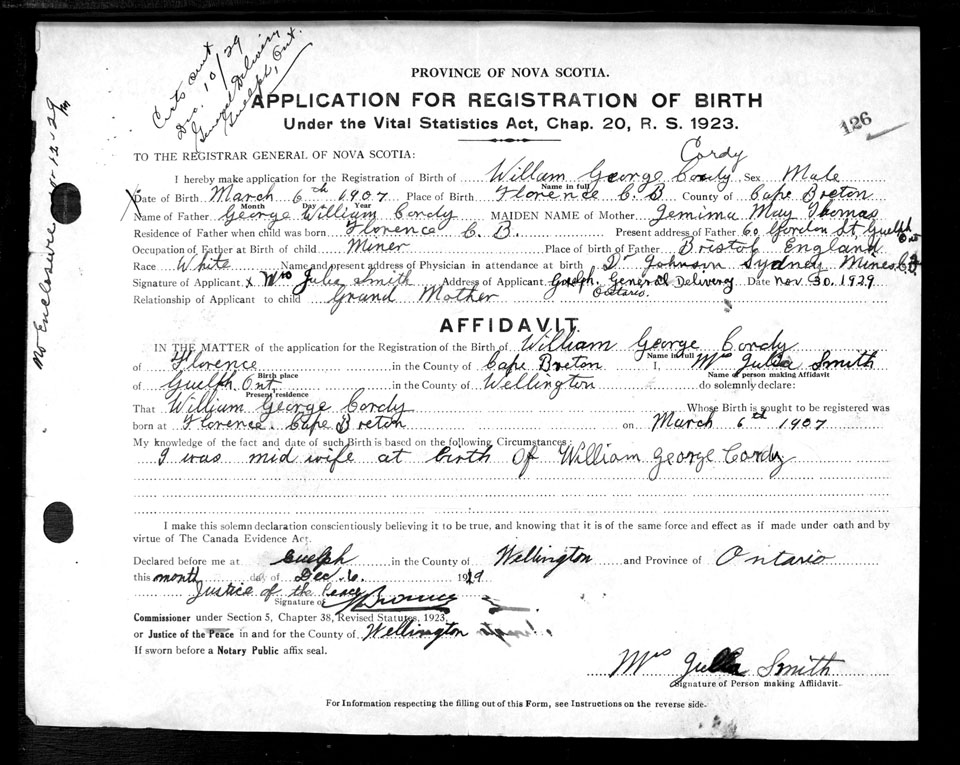 Certs out
Dec. 10/29
General Delivery
Guelph, Ont.
No Enclosure 12-29
PROVINCE OF NOVA SCOTIA.
APPLICATION FOR REGISTRATION OF BIRTH
Under the Vital Statistics Act, Chap. 20, R. S. 1923.
126
TO THE REGISTRAR GENERAL OF NOVA SCOTIA:
Cordy
I hereby make application for the Registration of Birth of William George Cordy Sex Male
Name in full
X Date of Birth March 6th 1907 Place of Birth Florence C. B County of Cape Breton
Month Day Year
Name of Father George William Cordy MAIDEN NAME of Mother Jemima May Thomas
Residence of Father when child was born Florence C. B. Present address of Father 60 Gordon St, Guelph Ont
Occupation of Father at Birth of child Miner Place of birth of Father Bristol England
Race White Name and present address of Physician in attendance at birth Dr Johnson Sydney Mines C.B
Signature of Applicant X Mrs Julia Smith Address of Applicant Guelph. General Delivery Date Nov 30. 1929
Ontario.
Relationship of Applicant to child Grand Mother
AFFIDAVIT.
IN THE MATTER of the application for the Registration of the Birth of William George Cordy
Name in full
of Florence in the County of Cape Breton I, Mrs Julia Smith
Birth place Name of person making Affidavit
of Guelph Ont in the County of Wellington do solemnly declare:
Present residence
That William George Cordy Whose Birth is sought to be registered was
born at Florence. Cape Breton on March 6th 1907
My knowledge of the fact and date of such Birth is based on the following Circumstances:
I was mid wife at birth of William George Cordy
I make this solemn declaration conscientiously believing it to be true, and knowing that it is of the same force and effect as if made under oath and by
virtue of The Canada Evidence Act.
Declared before me at Guelph in the County of Wellington and Province of Ontario
this month day of Dec. 6. 1929
Justice of the Peace
Signature of
Commissioner under Section 5, Chapter 38, Revised Statutes, 1923,
or Justice of the Peace in and for the County of Wellington
If sworn before a Notary Public affix seal.
Mrs Julia Smith
Signature of Person making Affidavit.
For Information respecting the filling out of this Form, see Instructions on the reverse side.